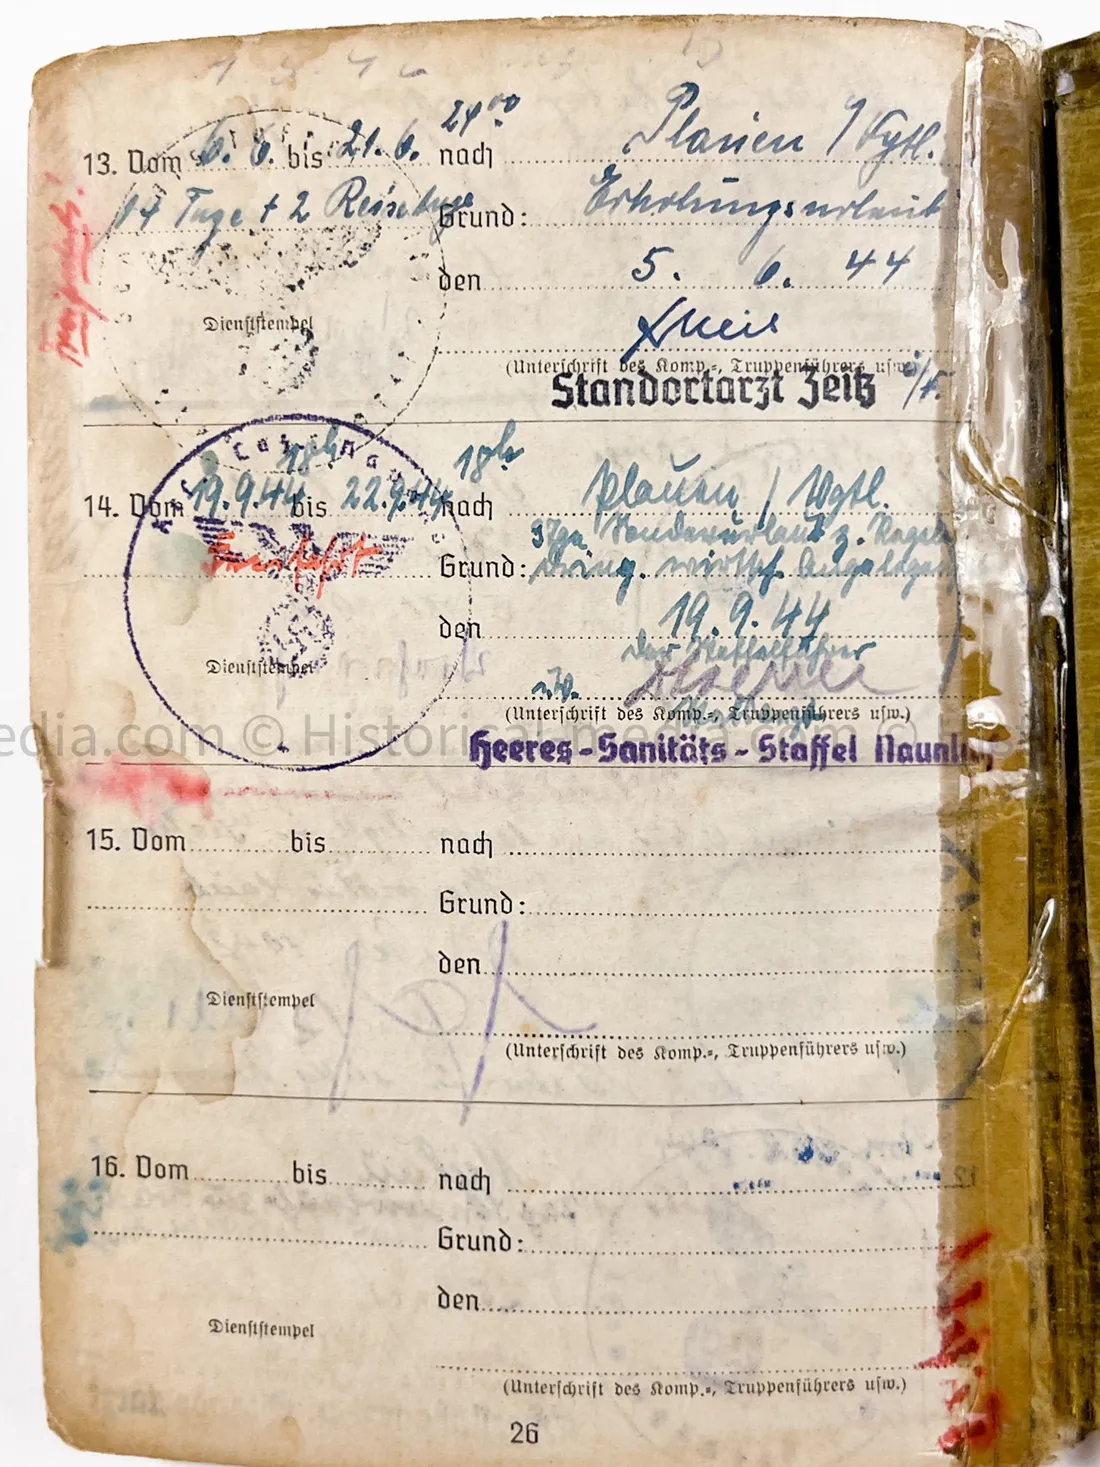 24⁰⁰
13. Vom 6. 6. bis 21. 6. nach Plauen / Vgtl.
14 Tage + 2 Reisetage Grund: Erholungsurlaub
den 5. 6. 44
Dienststempel
(Unterschrift des Komp.-, Truppenführers usw.)
Standortarzt Zeitz
18h 18h
14. Vom 19.9.44 bis 22.9.44 nach Plauen / Vgtl.
3 Tge Sonderurlaub z.
Grund: dring. wirtsch.
den 19.9.44
Der Staffelführer
Dienststempel
(Unterschrift des Komp.-, Truppenführers usw.)
edia.com © Historical-media.com ©
Heeres-Sanitäts-Staffel
15. Vom bis nach
Grund:
den
Dienststempel
(Unterschrift des Komp.-, Truppenführers usw.)
16. Vom bis nach
Grund:
den
Dienststempel
(Unterschrift des Komp.-, Truppenführers usw.)
26